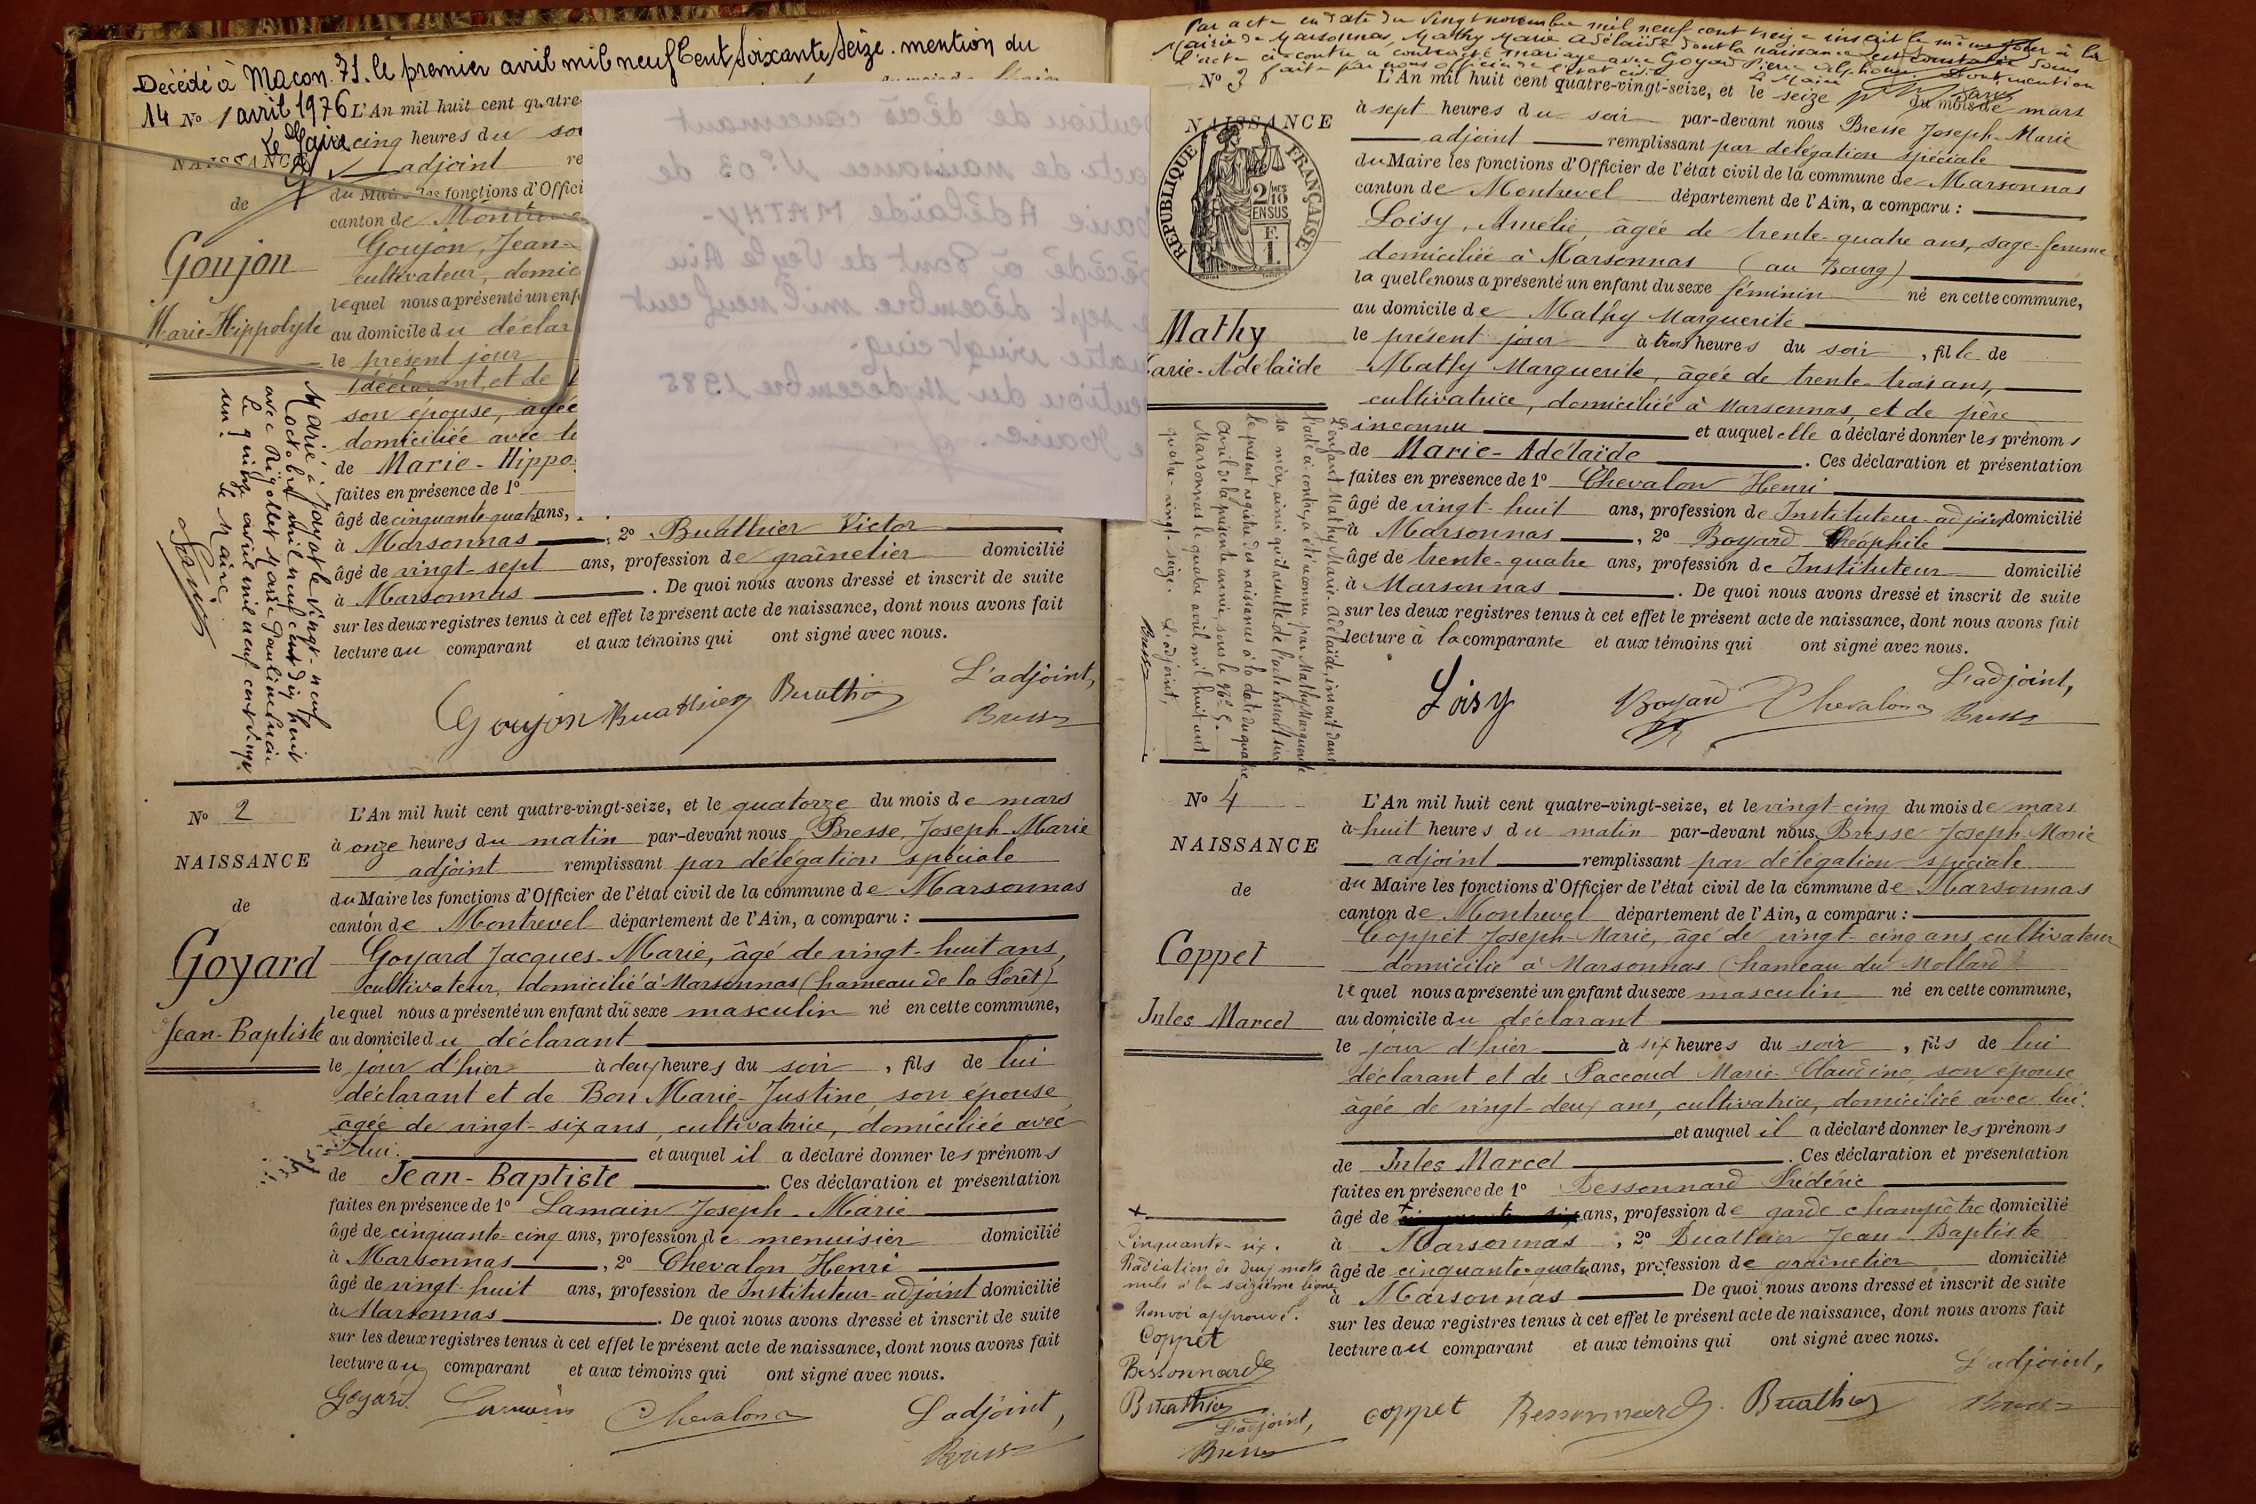 Décédé à Macon. 71. le premier avril mil neuf Cent Soixante Seize. mention du
14 avril 1976
Le Maire
No 1
L'An mil huit cent quatre-
cinq heures du
adjoint
NAISSANCE
de
du Maire les fonctions d'Offici
canton de
Goujon, Jean-
cultivateur, domic
Goujon
Marie-Hippolyte
lequel nous a présenté un enf
au domicile du déclar
le présent jour
déclarant, et de
son épouse, âgée
domiciliée avec
de Marie-Hippo
faites en présence de 1º
âgé de cinquante-quatre ans,
à Marsonnas, 2º Buathier Victor
âgé de vingt-sept ans, profession de grainetier domicilié
à Marsonnas. De quoi nous avons dressé et inscrit de suite
sur les deux registres tenus à cet effet le présent acte de naissance, dont nous avons fait
lecture au comparant et aux témoins qui ont signé avec nous.
L'adjoint,
Goujon Buathier Buathier
Bresse
Marié à Jayat le vingt-neuf
octobre mil neuf cent dix huit
avec Rigollet Marie Pauline
Le quinze avril mil neuf cent vingt
un. Le Maire
mention de décès concernant
acte de naissance N° 03 de
Marie Adélaïde MATHY-
Décédé à Pont de Veyle Ain
le sept décembre mil neuf cent
quatre vingt cinq.
mention du 14 décembre 1985
Le Maire.
No 2
NAISSANCE
de
Goyard
Jean-Baptiste
L'An mil huit cent quatre-vingt-seize, et le quatorze du mois de mars
à onze heures du matin par-devant nous Bresse, Joseph-Marie
adjoint remplissant par délégation spéciale
du Maire les fonctions d'Officier de l'état civil de la commune de Marsonnas
canton de Montrevel département de l'Ain, a comparu :
Goyard Jacques-Marie, âgé de vingt-huit ans,
cultivateur, domicilié à Marsonnas (hameau de la Forêt)
lequel nous a présenté un enfant du sexe masculin né en cette commune,
au domicile du déclarant
le jour d'hier à deux heures du soir, fils de lui
déclarant et de Bon Marie-Justine, son épouse,
âgée de vingt-six ans, cultivatrice, domiciliée avec
lui. et auquel il a déclaré donner les prénoms
de Jean-Baptiste. Ces déclaration et présentation
faites en présence de 1º Lamain Joseph-Marie
âgé de cinquante-cinq ans, profession de menuisier domicilié
à Marsonnas, 2º Chevalon Henri
âgé de vingt-huit ans, profession de Instituteur-adjoint domicilié
à Marsonnas. De quoi nous avons dressé et inscrit de suite
sur les deux registres tenus à cet effet le présent acte de naissance, dont nous avons fait
lecture au comparant et aux témoins qui ont signé avec nous.
Goyard Lamain Chevalon L'adjoint,
Bresse
Par acte en date du vingt novembre mil neuf cent treize inscrit le même jour à la
Mairie de Marsonnas, Mathy Marie Adélaïde dont la naissance est constatée dans
l'acte ci-contre a contracté mariage avec Goyard Pierre Alphonse. Dont mention
faite par nous officier de l'état civil
Le Maire
No 3
NAISSANCE
RÉPUBLIQUE FRANÇAISE
2/10 EN SUS
F. 1.
Mathy
Marie-Adélaïde
L'An mil huit cent quatre-vingt-seize, et le seize du mois de mars
à sept heures du soir par-devant nous Bresse Joseph-Marie
adjoint remplissant par délégation spéciale
du Maire les fonctions d'Officier de l'état civil de la commune de Marsonnas
canton de Montrevel département de l'Ain, a comparu :
Loisy, Amélie, âgée de trente-quatre ans, sage-femme
domiciliée à Marsonnas (au Bourg)
la quelle nous a présenté un enfant du sexe féminin né en cette commune,
au domicile de Mathy Marguerite
le présent jour à trois heures du soir, fille de
Mathy Marguerite, âgée de trente-trois ans,
cultivatrice, domiciliée à Marsonnas, et de père
inconnu et auquel elle a déclaré donner les prénoms
de Marie-Adélaïde. Ces déclaration et présentation
faites en présence de 1º Chevalon Henri
âgé de vingt-huit ans, profession de Instituteur-adjoint domicilié
à Marsonnas, 2º Boyard Théophile
âgé de trente-quatre ans, profession de Instituteur domicilié
à Marsonnas. De quoi nous avons dressé et inscrit de suite
sur les deux registres tenus à cet effet le présent acte de naissance, dont nous avons fait
lecture à la comparante et aux témoins qui ont signé avec nous.
Loisy Boyard Chevalon L'adjoint,
Bresse
L'enfant Mathy Marie-Adélaïde, inscrit dans
l'acte ci-contre, a été reconnu par Mathy Marguerite
sa mère, ainsi qu'il résulte de l'acte inscrit sur
le présent registre des naissances à la date du quatre
avril de la présente année, sous le No 5.
Marsonnas le quatre avril mil huit cent
quatre-vingt-seize. L'adjoint,
Bresse
No 4
NAISSANCE
de
Coppet
Jules Marcel
L'An mil huit cent quatre-vingt-seize, et le vingt-cinq du mois de mars
à huit heures du matin par-devant nous Bresse Joseph-Marie
adjoint remplissant par délégation spéciale
du Maire les fonctions d'Officier de l'état civil de la commune de Marsonnas
canton de Montrevel département de l'Ain, a comparu :
Coppet Joseph-Marie, âgé de vingt-cinq ans, cultivateur
domicilié à Marsonnas (hameau du Mollard)
lequel nous a présenté un enfant du sexe masculin né en cette commune,
au domicile du déclarant
le jour d'hier à six heures du soir, fils de lui
déclarant et de Paccoud Marie-Claudine, son épouse
âgée de vingt-deux ans, cultivatrice, domiciliée avec lui.
et auquel il a déclaré donner les prénoms
de Jules Marcel. Ces déclaration et présentation
faites en présence de 1º Bessonnard Frédéric
âgé de ans, profession de garde champêtre domicilié
à Marsonnas, 2º Buathier Jean-Baptiste
âgé de cinquante-quatre ans, profession de grainetier domicilié
à Marsonnas De quoi nous avons dressé et inscrit de suite
sur les deux registres tenus à cet effet le présent acte de naissance, dont nous avons fait
lecture au comparant et aux témoins qui ont signé avec nous.
L'adjoint,
Coppet Bessonnard Buathier Bresse
+
Cinquante-six.
Radiation de deux mots
nuls à la seizième ligne
Renvoi approuvé.
Coppet
Bessonnard
Buathier
L'adjoint,
Bresse